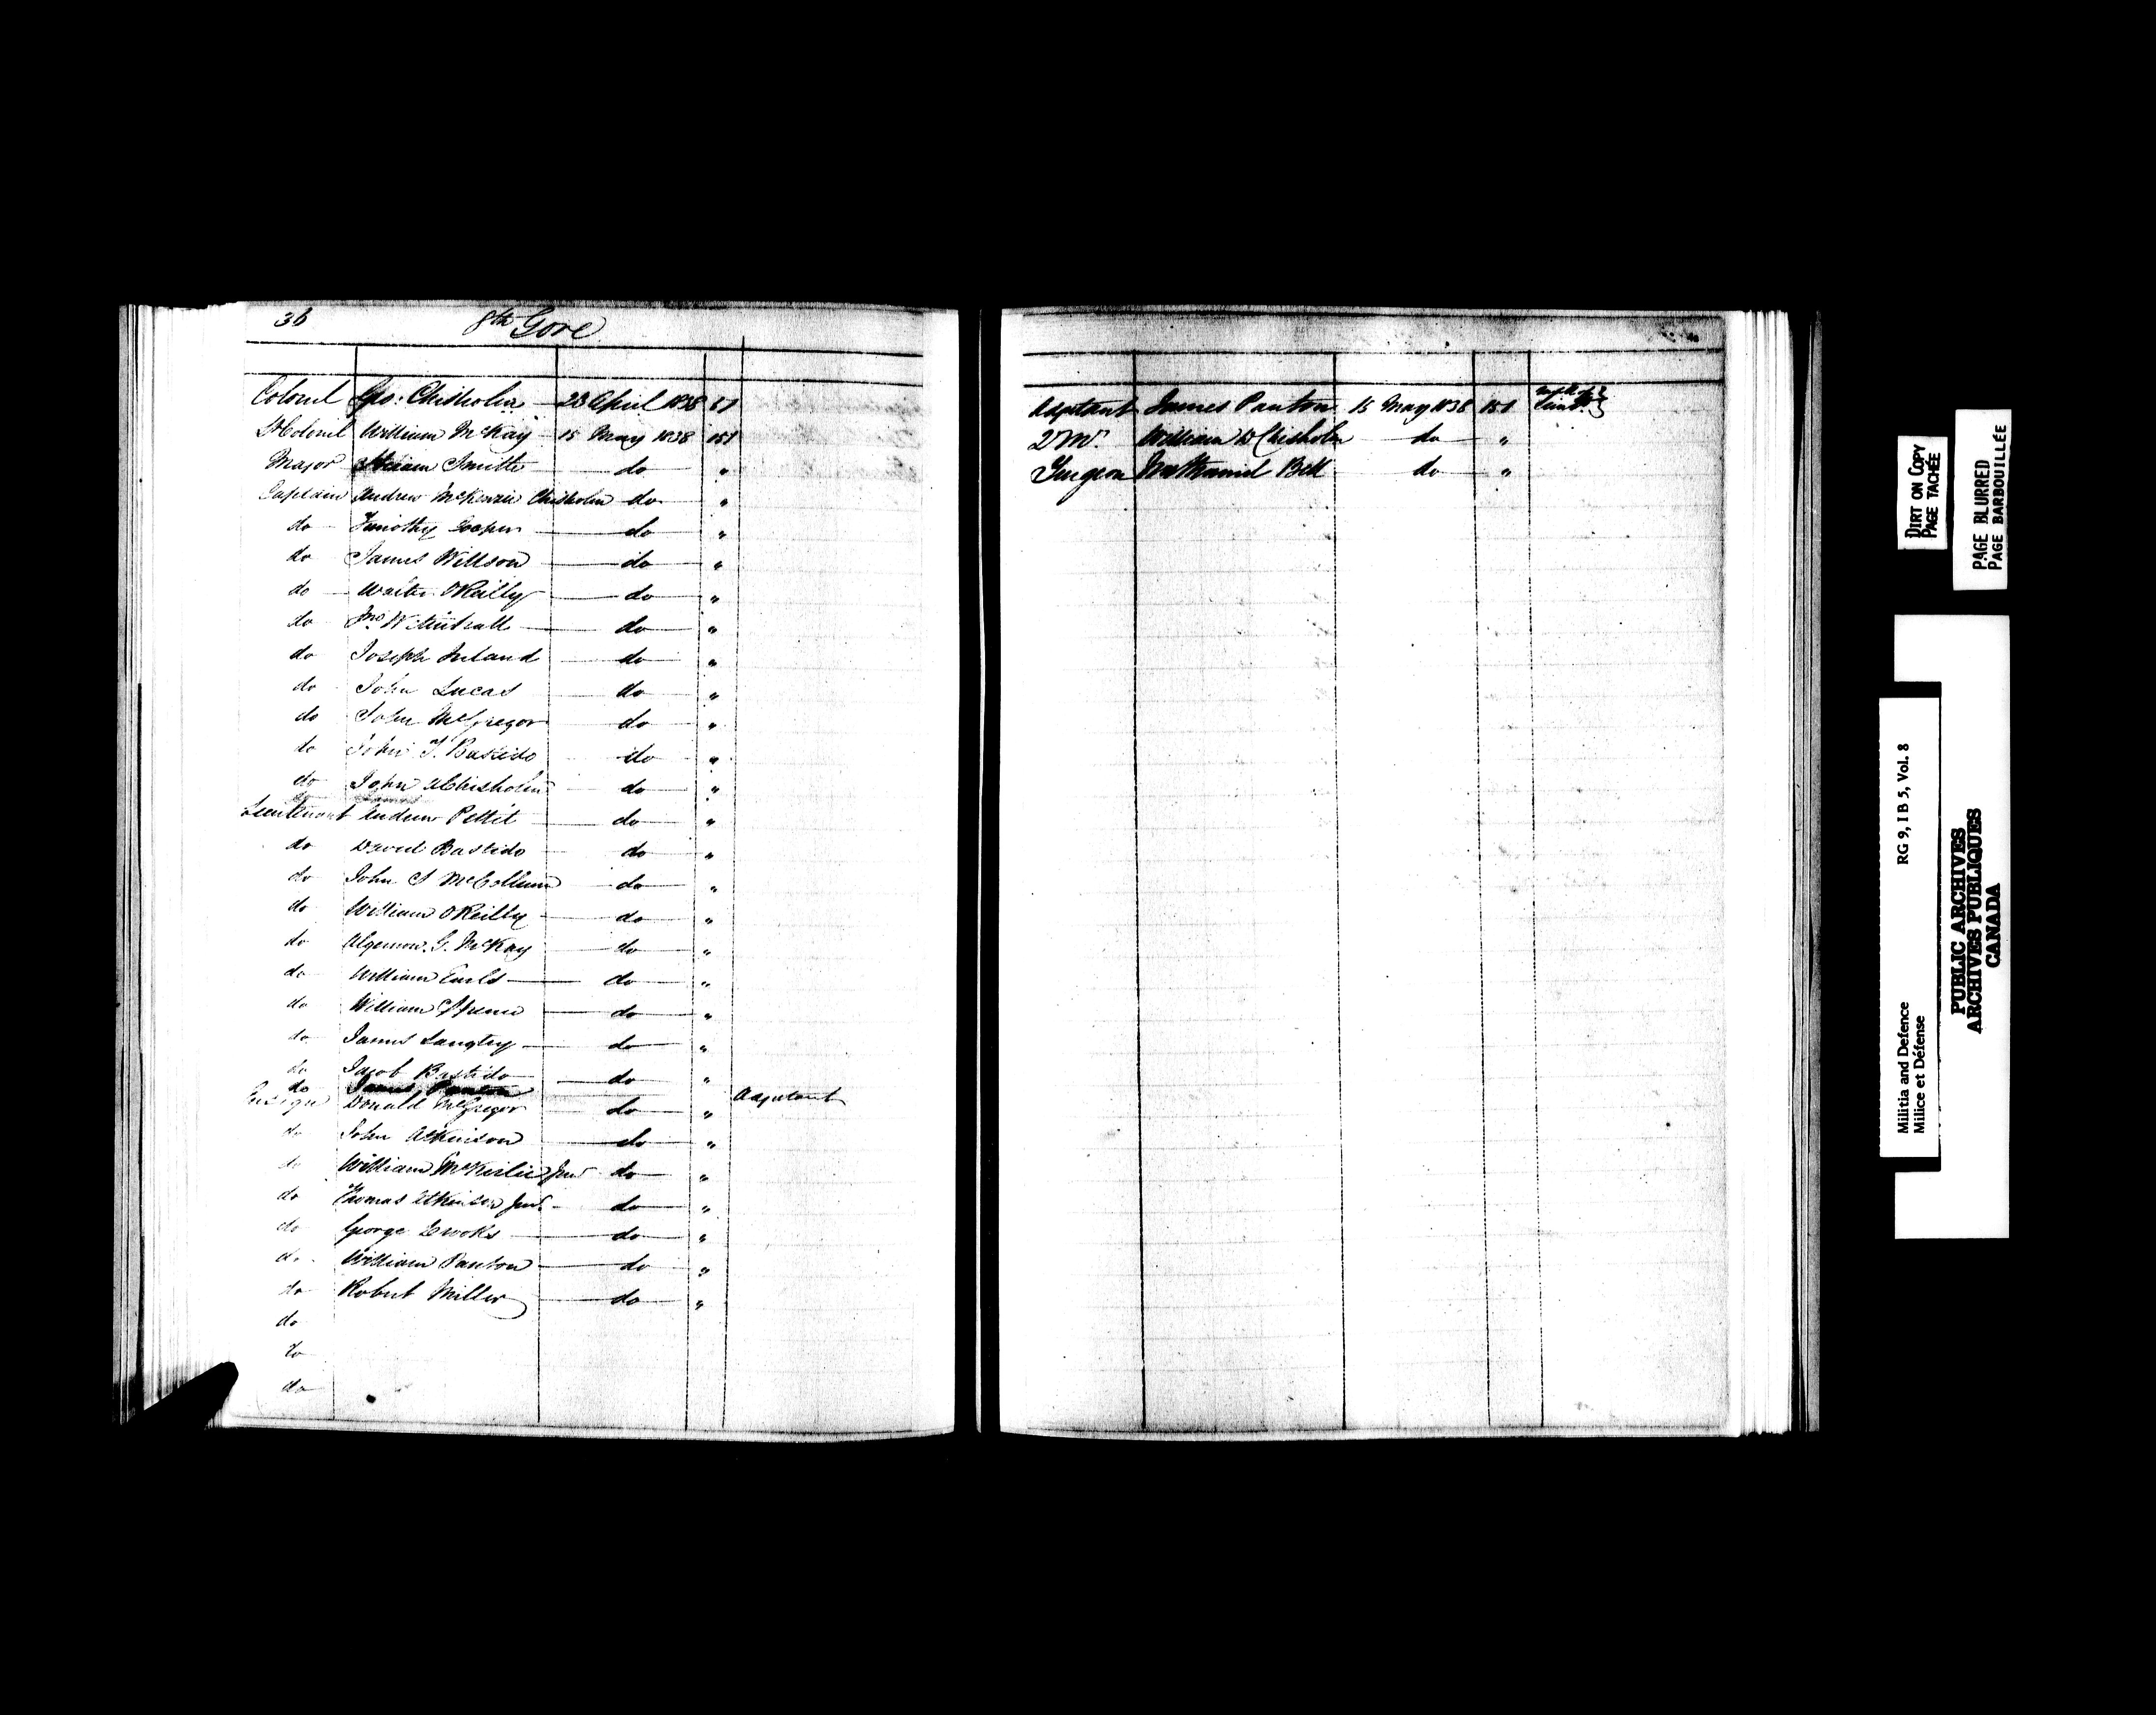 36 8th Gore
Colonel Geo: Chisholm 23 April 1838 67
Lt Colonel William McKay 15 May 1838 151
Major Hiram Smith do "
Captain Andrew McKenzie Chisholm do "
do Timothy Cooper do "
do James Willson do "
do Walter O'Reilly do "
do Jno W. do "
do Joseph Ireland do "
do John Lucas do "
do John McGregor do "
do John T. Bastido do "
do John A Chisholm do "
Lieutenant Andrew Pettit do "
do David Bastido do "
do John S McCollum do "
do William O'Reilly do "
do Algernon G. McKay do "
do William Earls do "
do William do "
do James Langtry do "
do Jacob Bastido do "
do James Panton
Ensign Donald McGregor do " Adjutant
do John Atkinson do "
do William McKerlie Junr do "
do Thomas Atkinson Junr do "
do George Crooks do "
do William Panton do "
do Robert Miller do "
do
do
do
Adjutant James Panton 15 May 1838 151 with Rank of Lieut.
Q M William D Chisholm do "
Surgeon Nathaniel Bell do "
DIRT ON COPY
PAGE TACHÉE
PAGE BLURRED
PAGE BARBOUILLÉE
Militia and Defence RG 9, I B 5, Vol. 8
Milice et Défense
PUBLIC ARCHIVES
ARCHIVES PUBLIQUES
CANADA